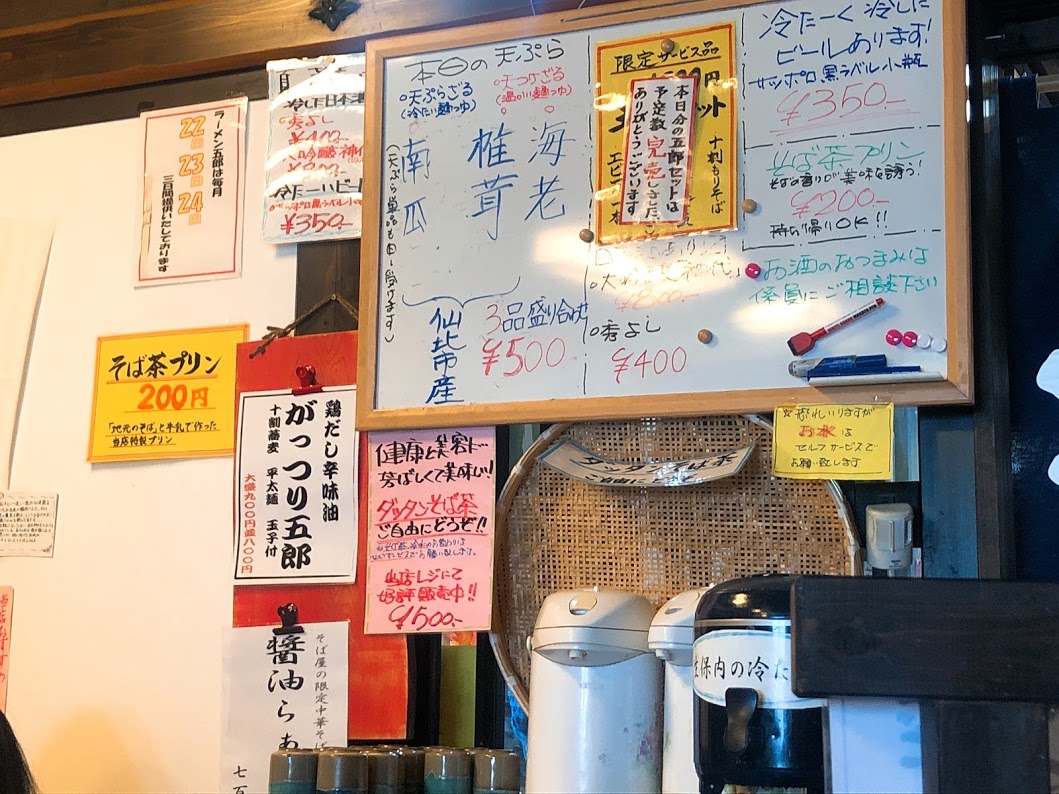 ラーメン五郎は毎月
22日
23日
24日
三日間提供いたしております
秀よし
¥350-
そば茶プリン
200円
「地元のそば」と牛乳で作った
当店特製プリン
鶏だし辛味油
がっつり五郎
十割蕎麦 平太麺 玉子付
大盛九〇〇円並八〇〇円
そば屋の限定中華そば
醤油らぁ
七百
健康と美容に
芳ばしくて美味しい!
ダッタンそば茶
ご自由にどうぞ!!
当店レジにて
好評販売中!!
¥500-
本日の天ぷら
○天ぷらざる
(冷たい麺つゆ)
○天つけざる
(温かい麺つゆ)
海老
椎茸
南瓜
(天ぷら単品も申し受けます)
仙北市産
3品盛り合わせ
¥500
限定サービス品
十割もりそば
本日分の五郎セットは
予定数完売しました。
ありがとうございます
○秀よし
¥400
冷たーく冷した
ビールあります!
サッポロ黒ラベル小瓶
¥350-
そば茶プリン
そばの香りが美味を誘う!
¥200-
持ち帰りOK!!
お酒のおつまみは
係員にご相談下さい
☆恐れいりますが
お水は
セルフサービスで
お願い致します
保内の冷た